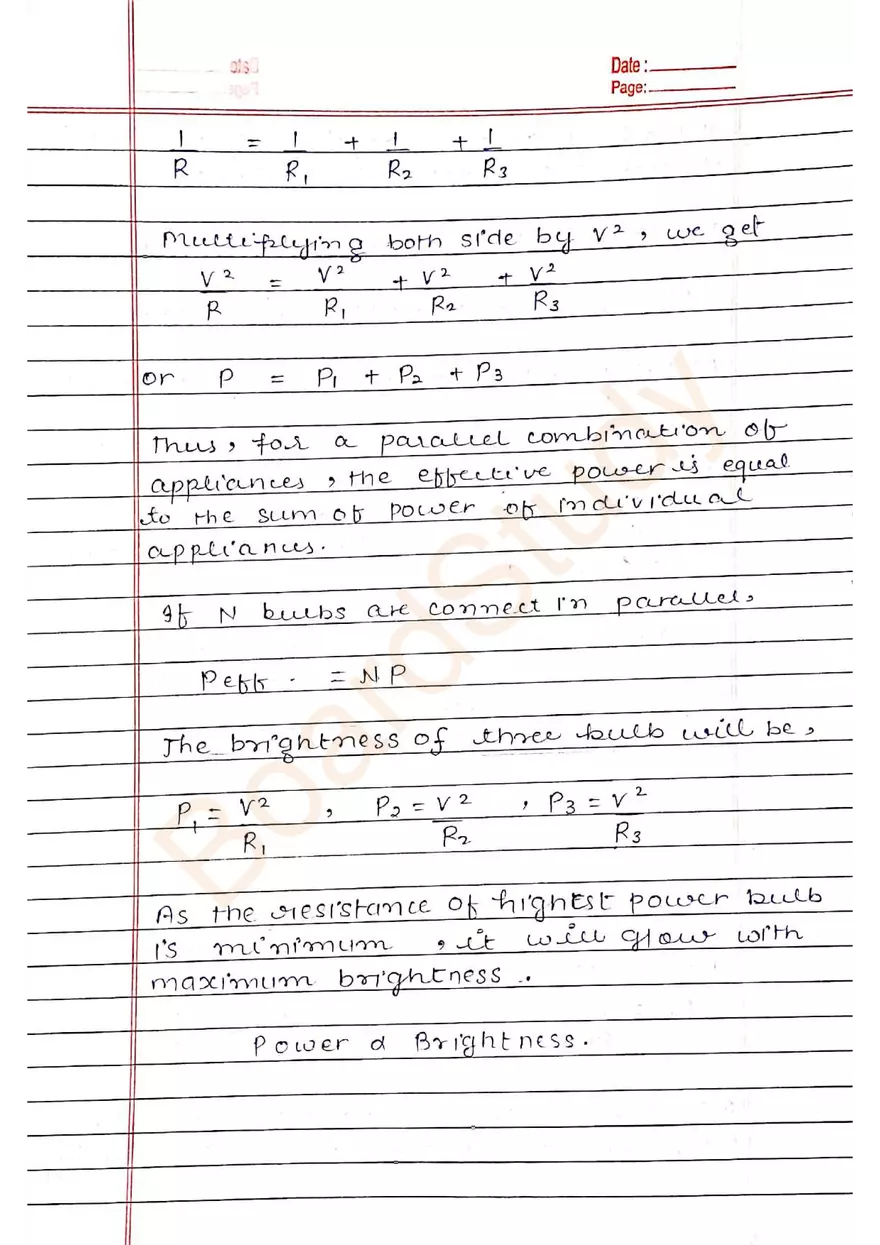 Date :
Page:
1/R = 1/R₁ + 1/R₂ + 1/R₃
Multiplying both side by V², we get
V²/R = V²/R₁ + V²/R₂ + V²/R₃
or P = P₁ + P₂ + P₃
Thus, for a parallel combination of
appliances, the effective power is equal
to the sum of power of individual
appliances.
If N bulbs are connect in parallel,
Peff. = NP
The brightness of three bulb will be,
P₁ = V²/R₁ , P₂ = V²/R₂ , P₃ = V²/R₃
As the resistance of highest power bulb
is minimum, it will glow with
maximum brightness.
Power α Brightness.
BoardStudy